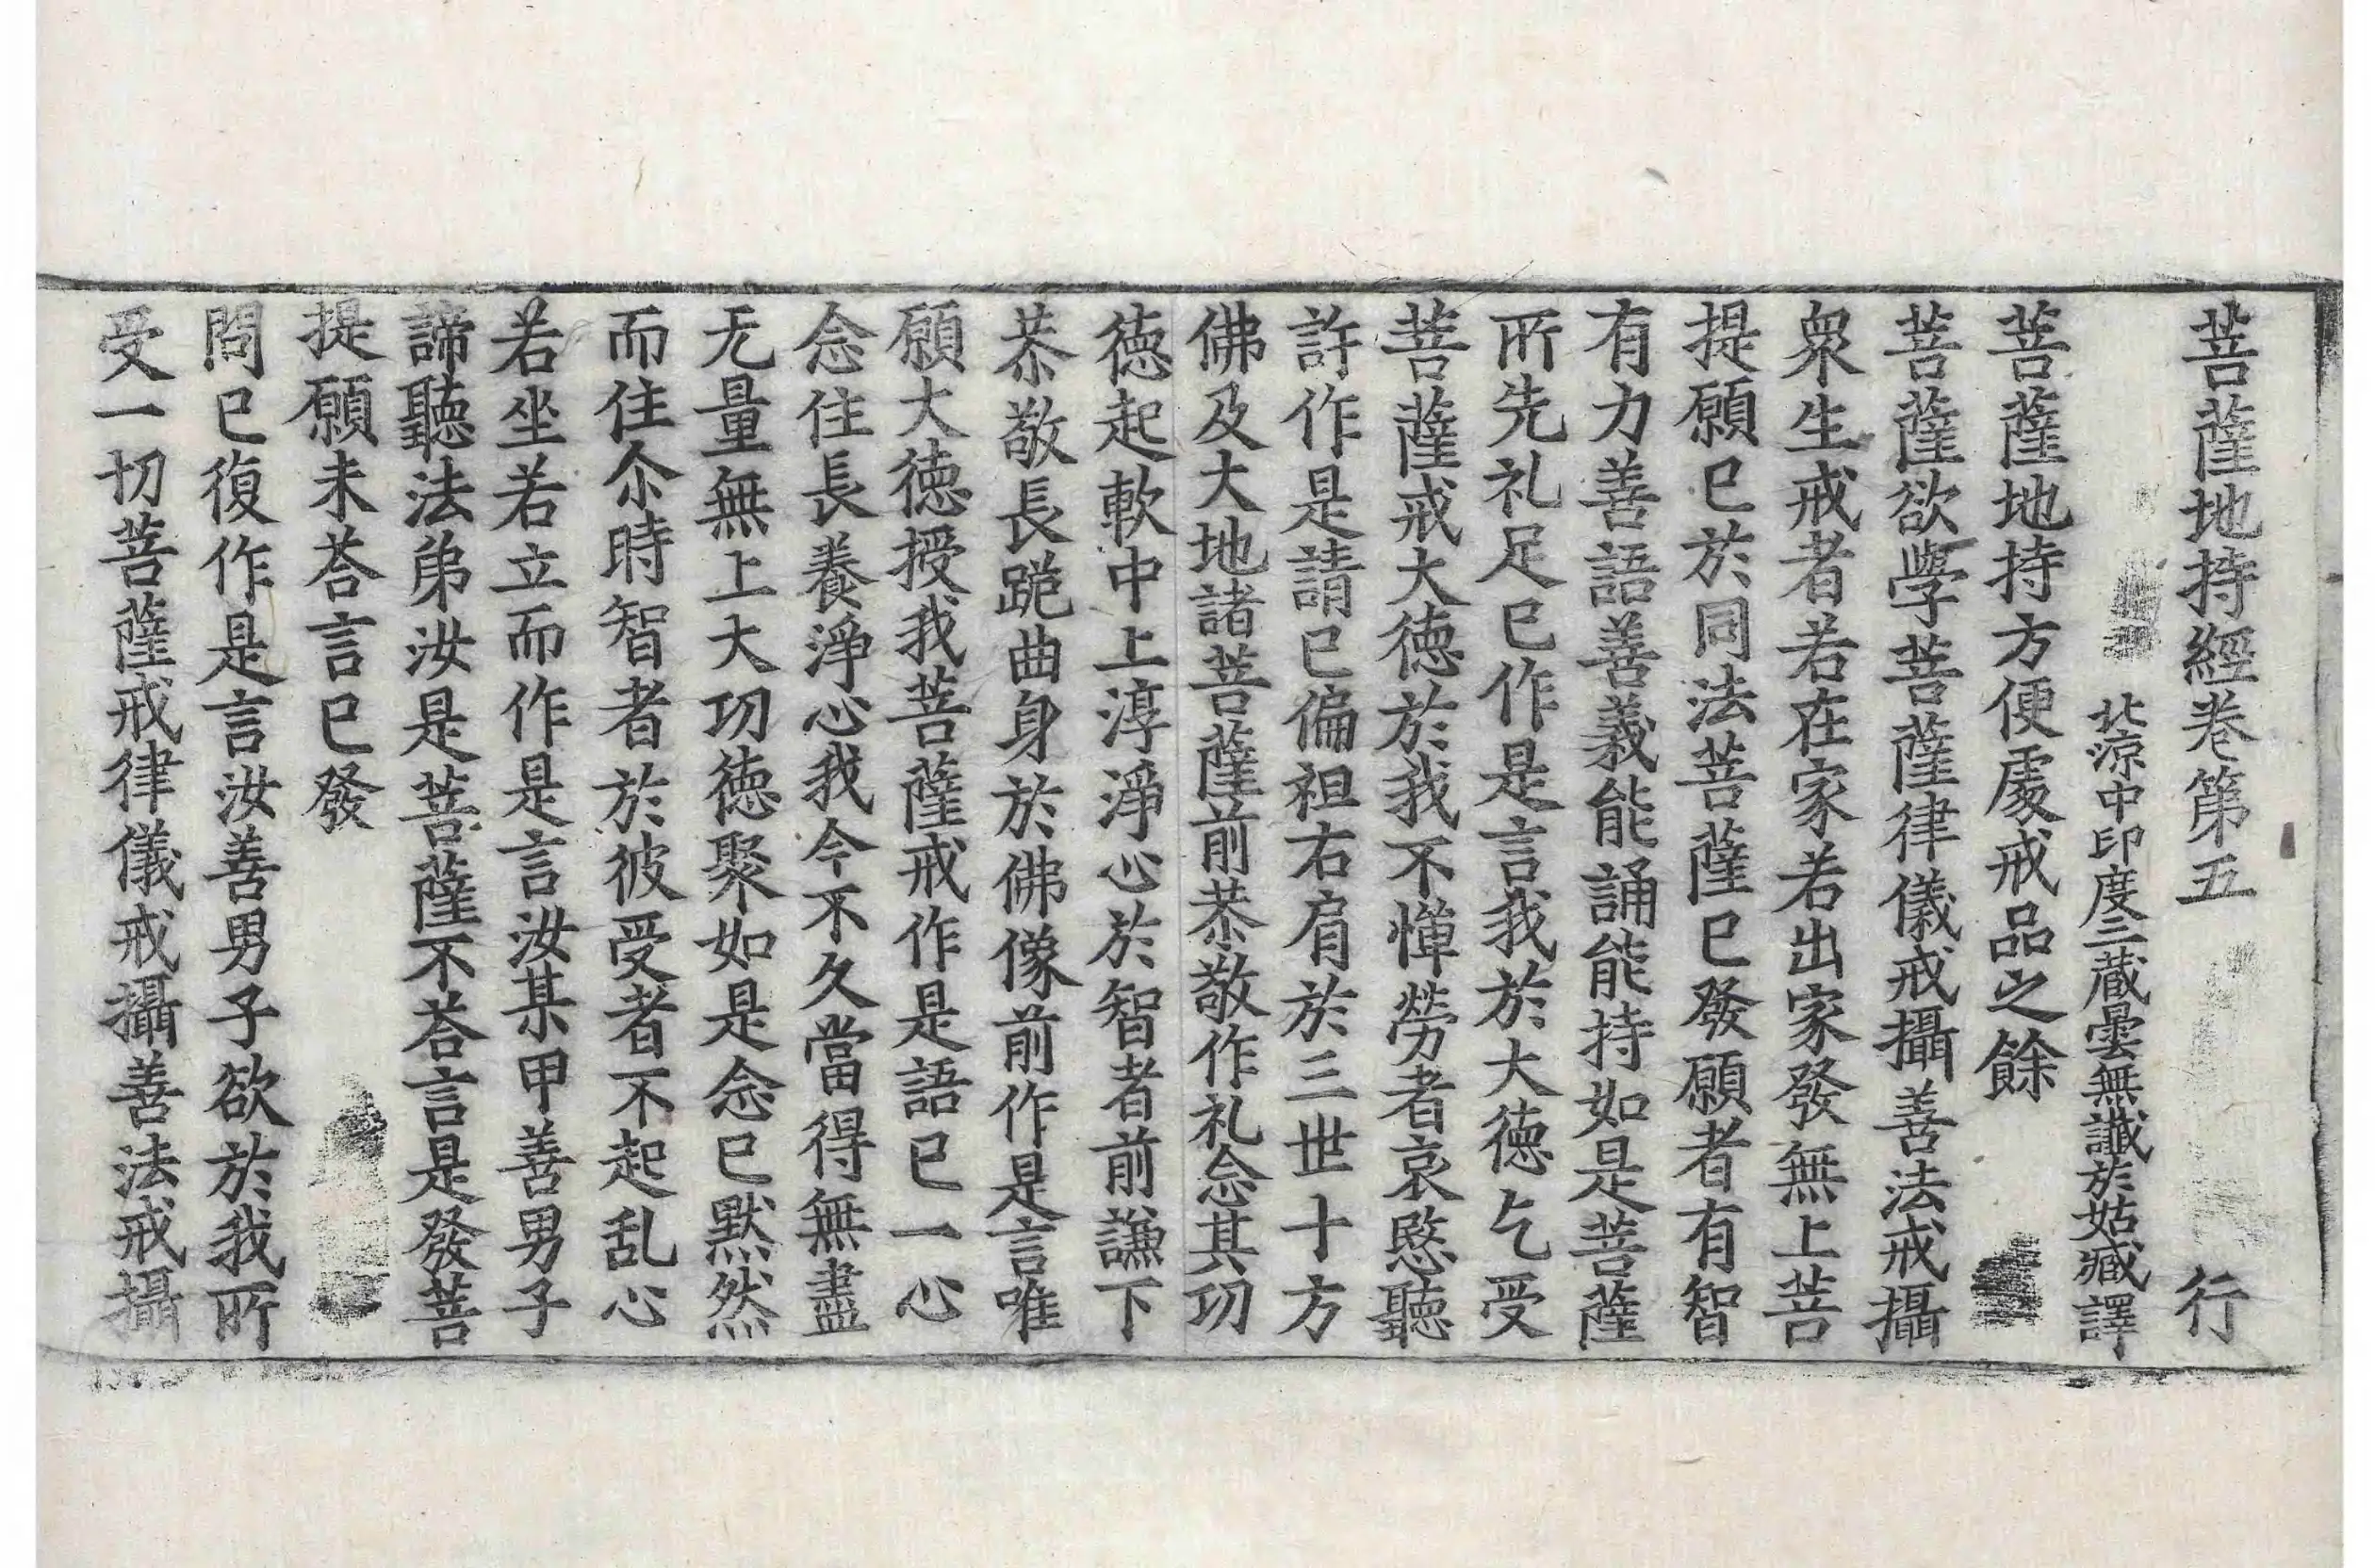 菩薩地持經卷第五 行
北涼中印度三蔵曇無讖於姑臧譯
菩薩地持方便處戒品之餘
菩薩欲學菩薩律儀戒攝善法戒攝
衆生戒者若在家若出家發無上菩
提願已於同法菩薩已發願者有智
有力善語善義能誦能持如是菩薩
所先礼足已作是言我於大徳乞受
菩薩戒大徳於我不憚勞者哀愍聽
許作是請已偏袒右肩於三世十方
佛及大地諸菩薩前恭敬作礼念其功
徳起軟中上淳淨心於智者前謙下
恭敬長跪曲身於佛像前作是言唯
願大徳授我菩薩戒作是語已一心
念住長養淨心我今不久當得無盡
无量無上大功徳聚如是念已默然
而住尒時智者於彼受者不起乱心
若坐若立而作是言汝某甲善男子
諦聽法弟汝是菩薩不荅言是發菩
提願未荅言已發
問已復作是言汝善男子欲於我所
受一切菩薩戒律儀戒攝善法戒攝